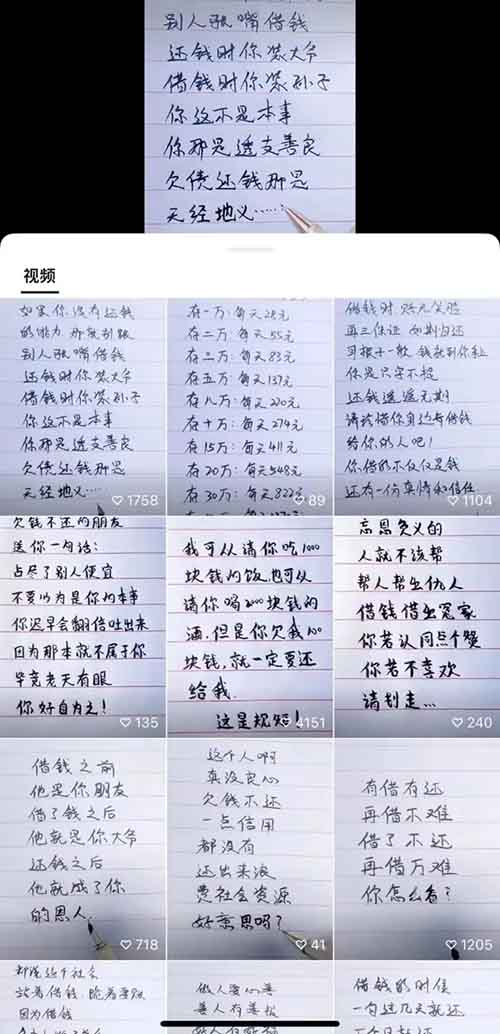 别人张嘴借钱
还钱时你装大爷
借钱时你装孙子
你这不是本事
你那是透支善良
欠债还钱那是
天经地义……
视频
如果你没有还钱
的能力 那就别跟
别人张嘴借钱
还钱时你装大爷
借钱时你装孙子
你这不是本事
你那是透支善良
欠债还钱那是
天经地义……
1758
存一万:每天28元
存二万:每天55元
存三万:每天83元
存五万:每天137元
存八万:每天220元
存十万:每天274元
存15万:每天411元
存20万:每天548元
存30万:每天822元
89
借钱时 赔尽笑脸
再三保证 如期归还
可根子一软 钱就到你手
你是只字不提
还钱遥遥无期
请珍惜你身边有借钱
给你的人吧!
你借的不仅仅是钱
还有一份真情和信任
1104
欠钱不还的朋友
送你一句话:
占尽了别人便宜
不要以为是你的本事
你迟早会翻倍吐出来
因为那本就不属于你
毕竟老天有眼
你好自为之!
135
我可以请你吃1000
块钱的饭,也可以
请你喝2000块钱的
酒,但是你欠我100
块钱,就一定要还
给我.
这是规矩!
4151
忘恩负义的
人就不该帮
帮人帮出仇人
借钱借出冤家
你若认同点个赞
你若不喜欢
请划走…
240
借钱之前
他是你朋友
借了钱之后
他就是你大爷
还钱之后
他就成了你
的恩人.
718
这个人啊
真没良心
欠钱不还
一点信用
都没有
还出来浪
费社会资源
好意思吗?
41
有借有还
再借不难
借了不还
再借万难
你怎么看?
1205
都说这个社会
站着借钱,跪着要账
因为借钱
做人要心善
善人有善报
借钱的时候
一句过几天就还